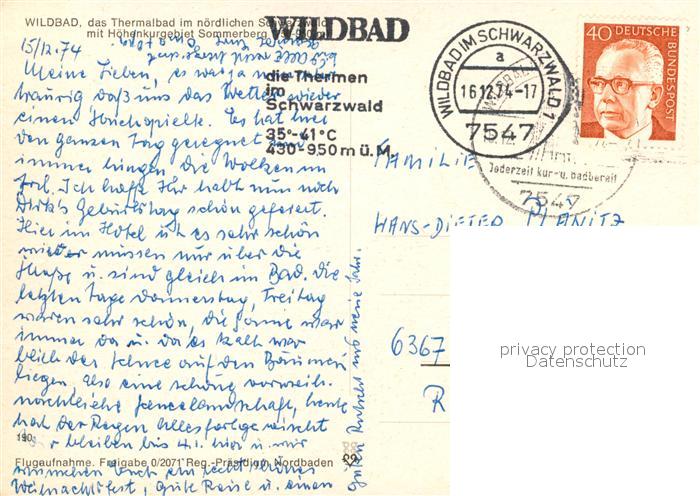 WILDBAD, das Thermalbad im nördlichen Schwarzwald
mit Höhenkurgebiet Sommerberg
WILDBAD
die Thermen
im
Schwarzwald
35°-41°C
430-950 m ü. M.
WILDBAD IM SCHWARZWALD 1
a
16.12.74-17
7547
Jederzeit kur- u. badbereit
7547
40 DEUTSCHE
BUNDESPOST
15/12.74
Meine Lieben, es war ja
traurig daß uns das Wetter wieder
einen Streich spielte. Es hat hier
den ganzen Tag geregnet und
immer hingen die Wolken im
Tal. Ich hoffe Ihr habt nun noch
Dirk's Geburtstag schön gefeiert.
Hier im Hotel ist es sehr schön
wieder müssen nur über die
Straße u. sind gleich im Bad. Die
letzten Tage Donnerstag, Freitag
waren sehr schön, die Sonne war
immer da u. da es kalt war
blieb der Schnee auf den Bäumen
liegen, also eine schöne vorweih-
nachtliche Schneelandschaft, heute
hat der Regen alles fortgewischt
bleiben bis 4.1. hier u. wir
wünschen Euch ein recht schönes
Weihnachtsfest, gute Reise u. einen
guten Rutsch ins neue Jahr.
FAMILIE
HANS-DIETER PLANITZ
6367
R
190
Flugaufnahme. Freigabe 0/2071 Reg.-Präsidium Nordbaden
privacy protection
Datenschutz